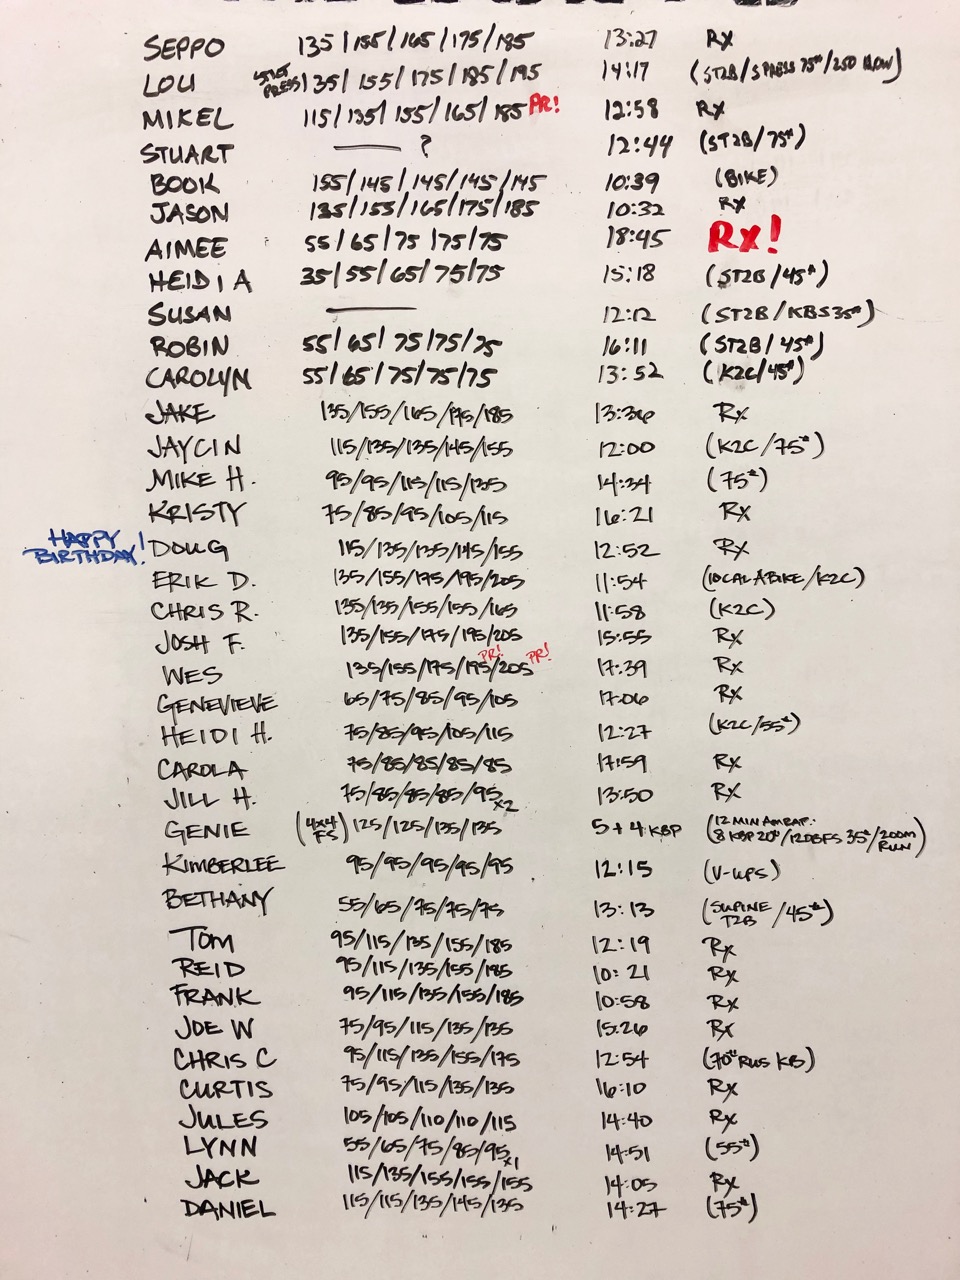 SEPPO 135/155/165/175/185 13:27 Rx
LOU 135/155/175/185/195 14:17 (ST2B/S PRESS 75#/250 ROW)
MIKEL 115/135/155/165/185 PR! 12:58 Rx
STUART — ? 12:44 (ST2B/75#)
BOOK 155/145/145/145/145 10:39 (BIKE)
JASON 135/155/165/175/185 10:32 Rx
AIMEE 55/65/75/75/75 18:45 Rx!
HEIDI A 35/55/65/75/75 15:18 (ST2B/45#)
SUSAN — 12:12 (ST2B/KBS 35#)
ROBIN 55/65/75/75/75 16:11 (ST2B/45#)
CAROLYN 55/65/75/75/75 13:52 (K2C/45#)
JAKE 135/155/165/175/185 13:36 Rx
JAYCIN 115/135/135/145/155 12:00 (K2C/75#)
MIKE H. 95/95/115/115/135 14:34 (75#)
KRISTY 75/85/95/105/115 16:21 Rx
HAPPY BIRTHDAY! DOUG 115/135/135/145/155 12:52 Rx
ERIK D. 135/155/175/195/205 11:54 (10CAL ABIKE/K2C)
CHRIS R. 135/135/155/155/165 11:58 (K2C)
JOSH F. 135/155/175/195/205 15:55 Rx
WES 135/155/175/195 PR!/205 PR! 17:39 Rx
GENEVIEVE 65/75/85/95/105 17:06 Rx
HEIDI H. 75/85/95/105/115 12:27 (K2C/55#)
CAROLA 75/85/85/85/85 17:59 Rx
JILL H. 75/85/85/85/95 x2 13:50 Rx
GENIE (4x4 FS) 125/125/135/135 5+4 KBP (12 MIN AMRAP: 8 KBP 20#/12DBFS 35#/200m RUN)
KIMBERLEE 95/95/95/95/95 12:15 (V-UPS)
BETHANY 55/65/75/75/75 13:13 (SUPINE T2B/45#)
TOM 95/115/135/155/185 12:19 Rx
REID 95/115/135/155/185 10:21 Rx
FRANK 95/115/135/155/185 10:58 Rx
JOE W 75/95/115/135/135 15:26 Rx
CHRIS C 95/115/135/155/175 12:54 (70# RUS KB)
CURTIS 75/95/115/135/135 16:10 Rx
JULES 105/105/110/110/115 14:40 Rx
LYNN 55/65/75/85/95 x1 14:51 (55#)
JACK 115/135/155/155/155 14:05 Rx
DANIEL 115/115/135/145/135 14:27 (75#)